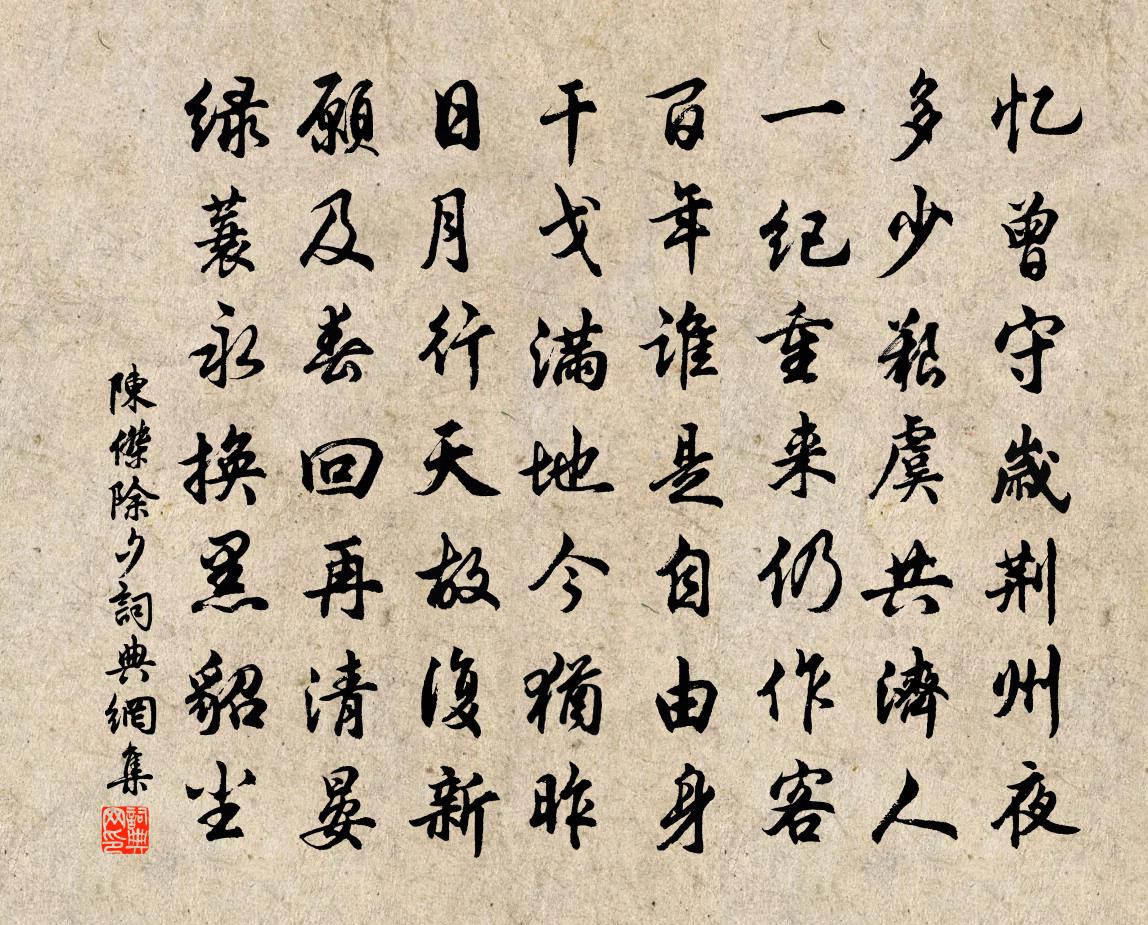 忆曾守歲荆州夜
多少艱虞共濟人
一纪重来仍作客
百年谁是自由身
干戈满地今猶昨
日月行天故復新
願及春回再清晏
绿蓑永換黑貂尘
陳傑除夕詞典網集
詞典网印